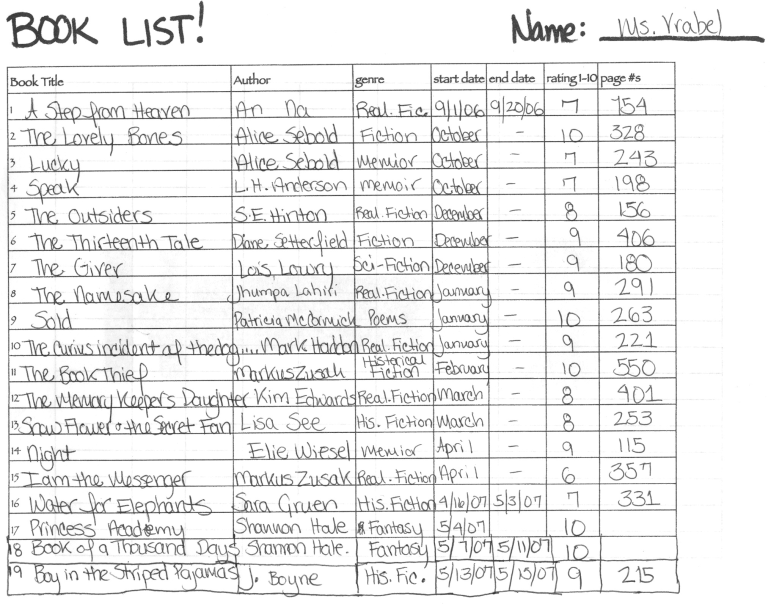 BOOK LIST! Name: Ms. Vrabel
Book Title Author genre start date end date rating 1-10 page #s
1 A Step from Heaven An Na Real. Fic. 9/1/06 9/20/06 7 154
2 The Lovely Bones Alice Sebold Fiction October - 10 328
3 Lucky Alice Sebold Memior October - 7 243
4 Speak L.H. Anderson memoir October - 7 198
5 The Outsiders S.E. Hinton Real. Fiction December - 8 156
6 The Thirteenth Tale Diane Setterfield Fiction December - 9 406
7 The Giver Lois, Lowry Sci-Fiction December - 9 180
8 The Namesake Jhumpa Lahiri Real. Fiction January - 9 291
9 Sold Patricia McCormick Poems January - 10 263
10 The Curius incident of the dog.... Mark Haddon Real. Fiction January - 9 221
11 The Book Thief Markus Zusak Historical Fiction February - 10 550
12 The Memory Keeper's Daughter Kim Edwards Real. Fiction March - 8 401
13 Snow Flower & the Secret Fan Lisa See His. Fiction March - 8 253
14 Night Elie Wiesel Memior April - 9 115
15 I am the Messenger Markus Zusak Real. Fiction April - 6 357
16 Water for Elephants Sara Gruen His. Fiction 4/16/07 5/3/07 7 331
17 Princess Academy Shannon Hale Fantasy 5/4/07 10
18 Book of a Thousand Days Shannon Hale. Fantasy 5/7/07 5/11/07 10
19 Boy in the Striped Pajamas J. Boyne His. Fic. 5/13/07 5/15/07 9 215